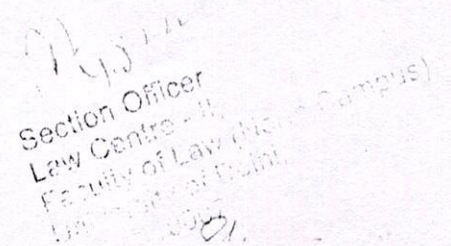 Section Officer
Law Centre - II,
Faculty of Law (Main Campus)
University of Delhi,